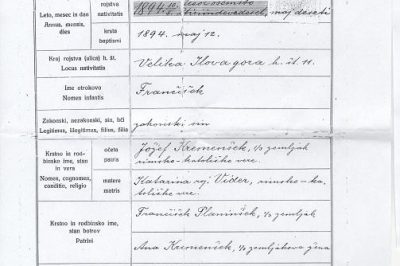 Leto, mesec in dan
Annus, mensis,
dies
rojstva
nativitatis
1894. 10.
tisoč osemsto
štiriindevetdeseti, maj deseti
krsta
baptismi
1894. maj 12.
Kraj rojstva (zaselek) h. št.
Locus nativitatis
Velika Ilova gora h. št 11.
Ime otrokovo
Nomen infantis
Frančišek
Zakonski, nezakonski, sin, hči
Legitimus, illegitimus, filius, filia
zakonski sin
Krstno in rod-
binsko ime, stan
in vera
Nomen, cognomen,
conditio, religio
očeta
patris
Jožef Kremenšek, 1/2 zemljak
rimsko-katoliške vere.
matere
matris
Katarina roj. Vider, rimsko-ka-
toliške vere.
Krstno in rodbinsko ime,
stan botrov
Patrini
Frančišek Planinšek, 1/2 zemljak
Ana Kremenšek, 1/2 zemljakova žena